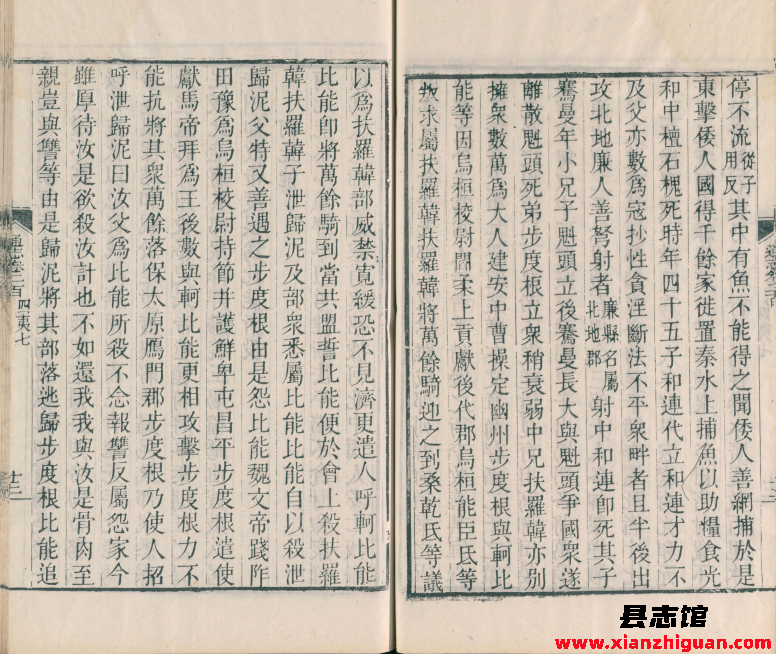 停不流從子用反其中有魚不能得之聞倭人善網捕於是
東擊倭人國得千餘家徙置秦水上捕魚以助糧食光
和中檀石槐死時年四十五子和連代立和連才力不
及父亦數為寇抄性貪淫斷法不平衆畔者且半後出
攻北地廉人善弩射者廉縣名屬北地郡射中和連即死其子
騫曼年小兄子魁頭立後騫曼長大與魁頭爭國衆遂
離散魁頭死弟步度根立衆稍衰弱中兄扶羅韓亦別
擁衆數萬為大人建安中曹操定幽州步度根與軻比
能等因烏桓校尉閻柔上貢獻後代郡烏桓能臣氐等
叛求屬扶羅韓扶羅韓將萬餘騎迎之到桑乾氐等議
以為扶羅韓部威禁寬緩恐不見濟更遣人呼軻比能
比能即將萬餘騎到當共盟誓比能便於會上殺扶羅
韓扶羅韓子泄歸泥及部衆悉屬比能比能自以殺泄
歸泥父特又善遇之步度根由是怨比能魏文帝踐阼
田豫為烏桓校尉持節并護鮮卑屯昌平步度根遣使
獻馬帝拜為王後數與軻比能更相攻擊步度根力不
能抗將其衆萬餘落保太原鴈門郡步度根乃使人招
呼泄歸泥曰汝父為比能所殺不念報讐反屬怨家今
雖厚待汝是欲殺汝計也不如還我我與汝是骨肉至
親豈與讐等由是歸泥將其部落逃歸步度根比能追
四夷七
十三
县志馆
www.xianzhiguan.com